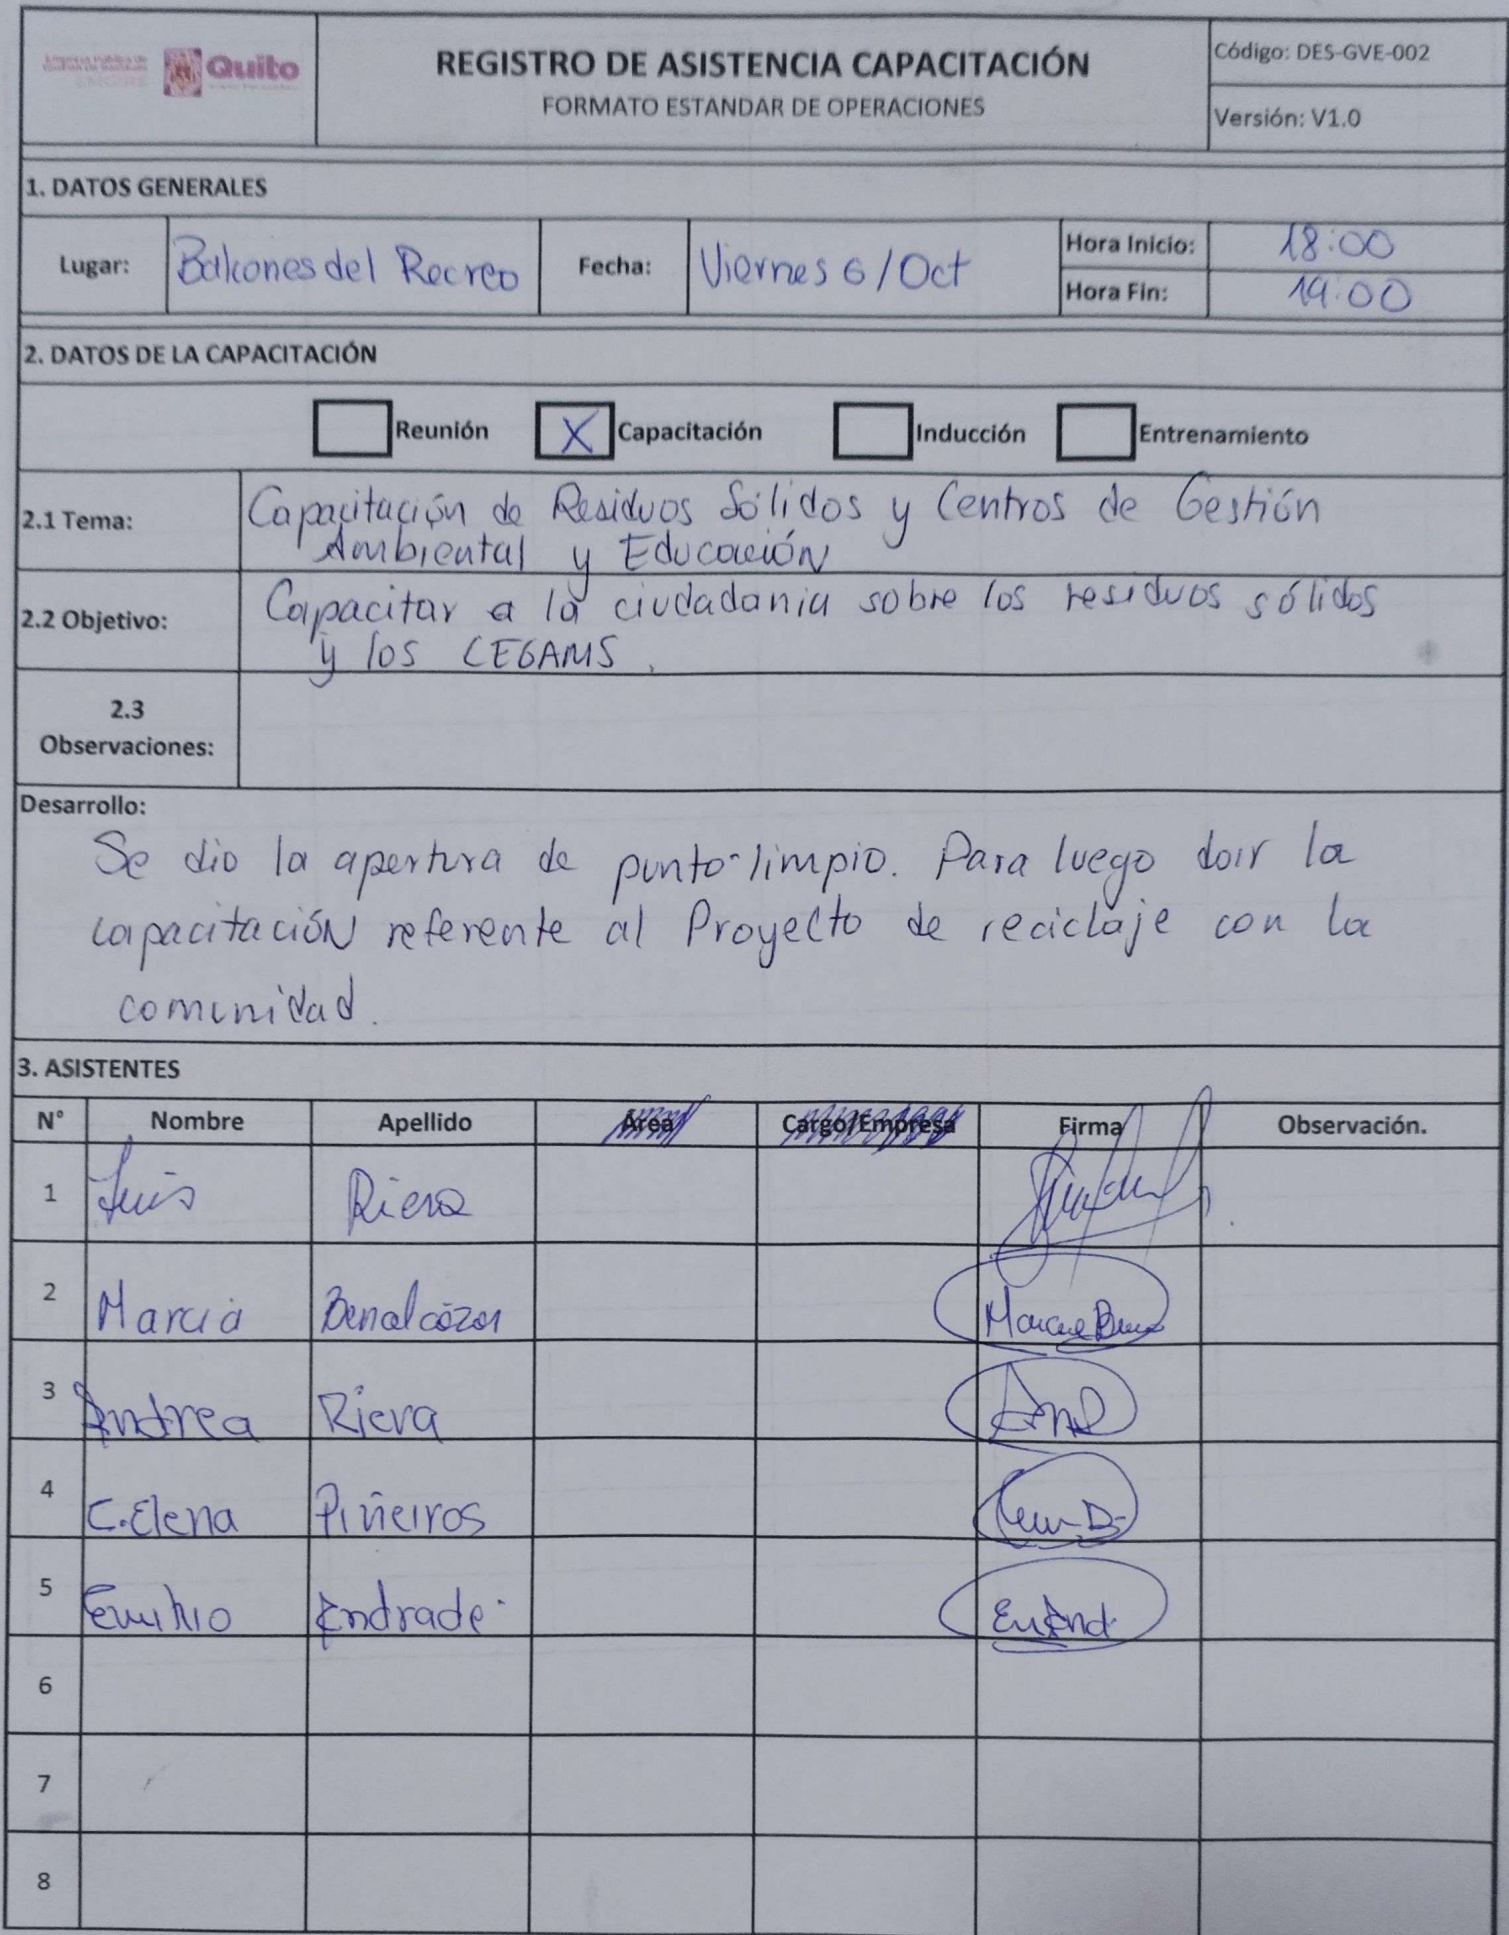 Quito
REGISTRO DE ASISTENCIA CAPACITACIÓN
FORMATO ESTANDAR DE OPERACIONES
Código: DES-GVE-002
Versión: V1.0
1. DATOS GENERALES
Lugar: Balcones del Recreo Fecha: Viernes 6/Oct Hora Inicio: 18:00
Hora Fin: 19:00
2. DATOS DE LA CAPACITACIÓN
Reunión X Capacitación Inducción Entrenamiento
2.1 Tema: Capacitación de Residuos Sólidos y Centros de Gestión
Ambiental y Educación
2.2 Objetivo: Capacitar a la ciudadania sobre los residuos sólidos
y los CEGAMS.
2.3
Observaciones:
Desarrollo:
Se dio la apertura de punto-limpio. Para luego dar la
capacitación referente al Proyecto de reciclaje con la
comunidad.
3. ASISTENTES
N° Nombre Apellido Area Cargo/Empresa Firma Observación.
1 Luis Riera
2 Marcia Benalcázar
3 Andrea Riera
4 C. Elena Piñeiros
5 Emilio Andrade
6
7
8